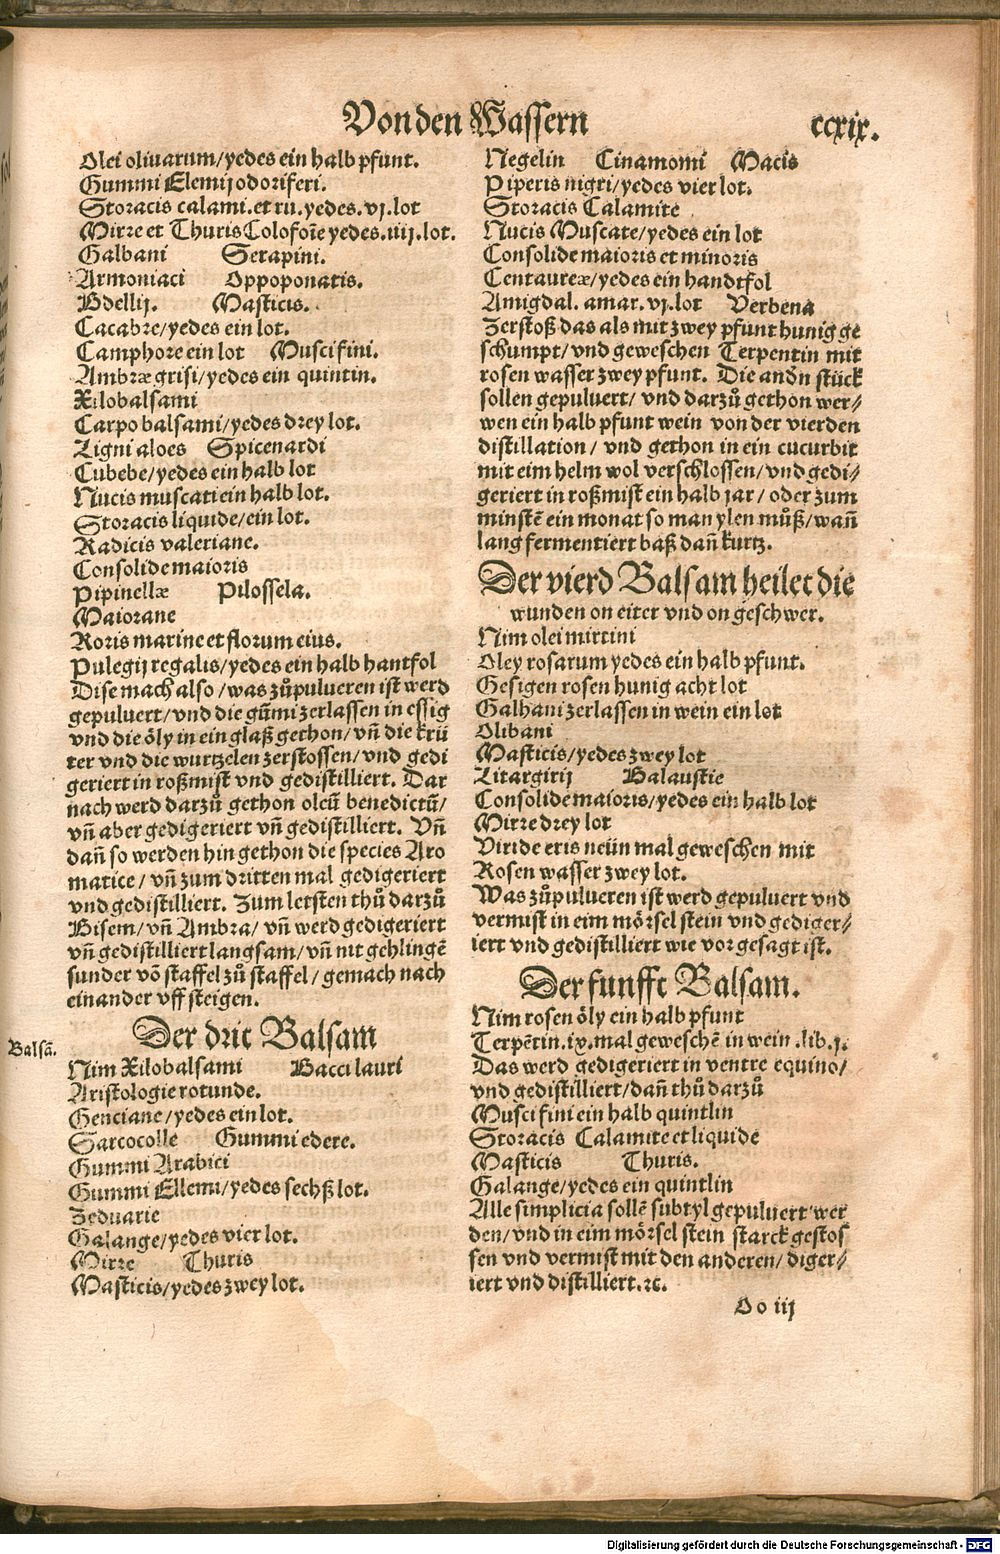 Von den Wassern
ccxix.
Olei oliuarum/yedes ein halb pfunt.
Gummi Elemi odoriferi.
Storacis calami. et ru. yedes. vj. lot
Mirre et Thuris Colofoīe yedes. iiij. lot.
Galbani Serapini.
Armoniaci Oppoponatis.
Bdellij. Masticis.
Cacabre/yedes ein lot.
Camphore ein lot Musci fini.
Ambræ grisi/yedes ein quintin.
Xilobalsami
Carpobalsami/yedes drey lot.
Ligni aloes Spicenardi
Cubebe/yedes ein halb lot
Nucis muscati ein halb lot.
Storacis liquide/ein lot.
Radicis valeriane.
Consolide maioris
Pipinellæ Pilossela.
Maiorane
Roris marine et florum eius.
Pulegij regalis/yedes ein halb hantfol
Dise mach also/was zůpulueren ist werd
gepuluert/vnd die gūmi zerlassen in essig
vnd die öly in ein glaß gethon/vn̄ die krü
ter vnd die wurtzelen zerstossen/vnd gedi
geriert in roßmist vnd gedistilliert. Dar
nach werd darzů gethon oleū benedictū/
vn̄ aber gedigeriert vn̄ gedistilliert. Vn̄
dan̄ so werden hin gethon die species Aro
matice/vn̄ zum dritten mal gedigeriert
vnd gedistilliert. Zum letsten thů darzů
Bisem/vn̄ Ambra/vn̄ werd gedigeriert
vn̄ gedistilliert langsam/vn̄ nit gehlingē
sunder vō staffel zů staffel/gemach nach
einander vff steigen.
Der drit Balsam
Balsā.
Nim Xilobalsami Bacci lauri
Aristologie rotunde.
Genciane/yedes ein lot.
Sarcocolle Gummi edere.
Gummi Arabici
Gummi Ellemi/yedes sechß lot.
Zeduarie
Galange/yedes vier lot.
Mirre Thuris
Masticis/yedes zwey lot.
Negelin Cinamomi Macis
Piperis nigri/yedes vier lot.
Storacis Calamite
Nucis Muscate/yedes ein lot
Consolide maioris et minoris
Centaureæ/yedes ein handtfol
Amigdal. amar. vj. lot Verbena
Zerstoß das als mit zwey pfunt hunig ge
schumpt/vnd geweschen Terpentin mit
rosen wasser zwey pfunt. Die andn̄ stück
sollen gepuluert/vnd darzů gethon wer/
wen ein halb pfunt wein von der vierden
distillation/vnd gethon in ein cucurbit
mit eim helm wol verschlossen/vnd gedi-
geriert in roßmist ein halb jar/oder zum
minstē ein monat so man ylen můß/wan̄
lang fermentiert baß dan̄ kurtz.
Der vierd Balsam heilet die
wunden on eiter vnd on geschwer.
Nim olei mirtini
Oley rosarum yedes ein halb pfunt.
Gesigen rosen hunig acht lot
Galbani zerlassen in wein ein lot
Olibani
Masticis/yedes zwey lot
Litargirij Balaustie
Consolide maioris/yedes ein halb lot
Mirre drey lot
Viride eris neün mal geweschen mit
Rosen wasser zwey lot.
Was zůpulueren ist werd gepuluert vnd
vermist in eim mörsel stein vnd gediger/
iert vnd gedistilliert wie vor gesagt ist.
Der funfft Balsam.
Nim rosen öly ein halb pfunt
Terpētin. ix. mal geweschē in wein. lib. j.
Das werd gedigeriert in ventre equino/
vnd gedistilliert/dan̄ thů darzů
Musci fini ein halb quintlin
Storacis Calamite et liquide
Masticis Thuris.
Galange/yedes ein quintlin
Alle simplicia sollē subtyl gepuluert wer
den/vnd in eim mörsel stein starck gestos
sen vnd vermist mit den anderen/diger/
iert vnd distilliert. ꝛc.
Oo iij
Digitalisierung gefördert durch die Deutsche Forschungsgemeinschaft - DFG